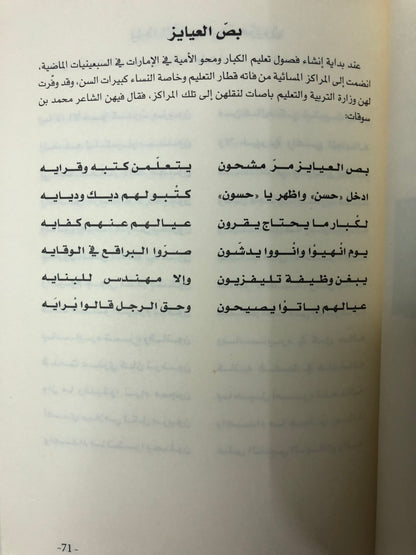 بصّ العيايز
عند بداية إنشاء فصول تعليم الكبار ومحو الأمية في الإمارات في السبعينيات الماضية،
انضمت إلى المراكز المسائية من فاته قطار التعليم وخاصة النساء كبيرات السن، وقد وفّرت
لهن وزارة التربية والتعليم باصات لنقلهن إلى تلك المراكز، فقال فيهن الشاعر محمد بن
سوقات:
بص العيايز مرّ مشحون يتعلّمن كتبه وقرايه
ادخل «حسن» واظهر يا «حسون» كتُبو لهم ديك ودبايه
لكُبار ما يحتاج يقرون عيالهم عنهم كفايه
يوم انْهيوْا وانْووا يدشّون صرّوا البراقع في الوقايه
يبغن وظيفة تليفزيون وإلا مهندس للبنايه
عيالهم باتوْا يصيحون وحق الرجل قالوا بْرايه
-71-